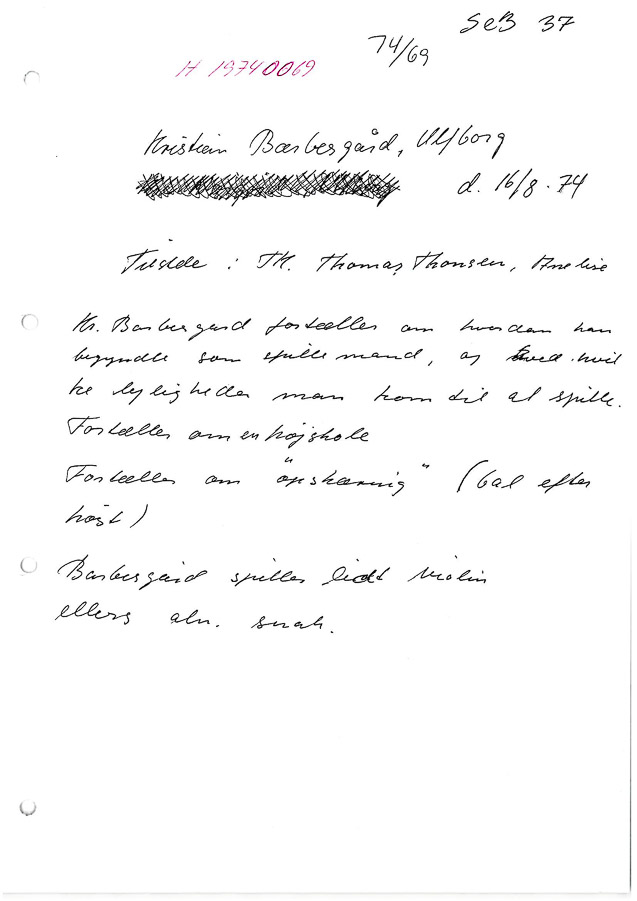 SeB 37
74/69
H 19740069
Kristian Barbesgård, Ulfborg
d. 16/8. 74
Tilstede : TK. Thomas Thomsen, Anelise
Kr. Barbesgård fortæller om hvordan han
begyndte som spillemand, og ved hvil
ke lejligheder man kom til at spille.
Fortæller om en højskole
Fortæller om "opskæring" (bal efter
høst)
Barbesgård spiller lidt violin
ellers alm. snak.